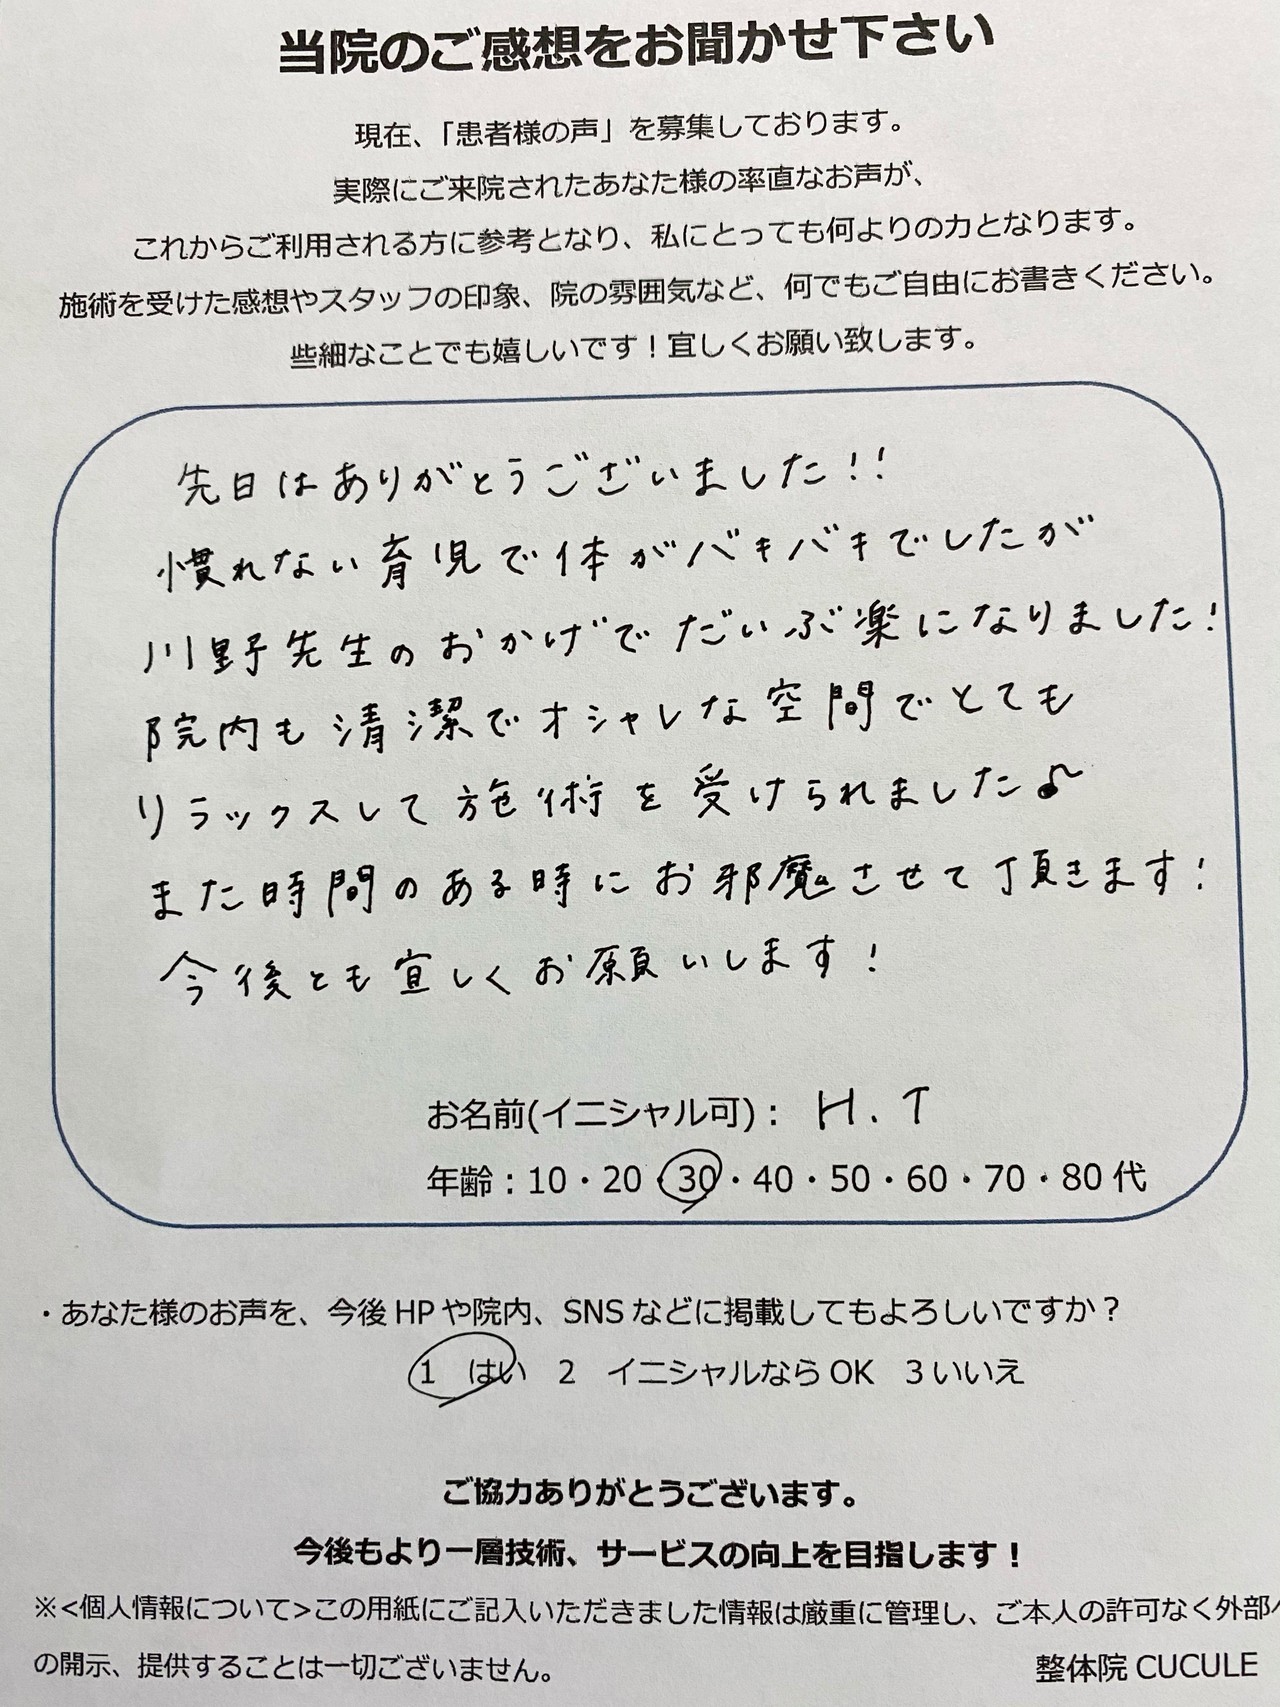 当院のご感想をお聞かせ下さい
現在、「患者様の声」を募集しております。
実際にご来院されたあなた様の率直なお声が、
これからご利用される方に参考となり、私にとっても何よりの力となります。
施術を受けた感想やスタッフの印象、院の雰囲気など、何でもご自由にお書きください。
些細なことでも嬉しいです！宜しくお願い致します。
先日はありがとうございました!!
慣れない育児で体がバキバキでしたが
川野先生のおかげでだいぶ楽になりました!
院内も清潔でオシャレな空間でとても
リラックスして施術を受けられました♪
また時間のある時にお邪魔させて頂きます!
今後とも宜しくお願いします!
お名前(イニシャル可)： H.T
年齢：10・20・30・40・50・60・70・80代
・あなた様のお声を、今後HPや院内、SNSなどに掲載してもよろしいですか？
1 はい 2 イニシャルならOK 3いいえ
ご協力ありがとうございます。
今後もより一層技術、サービスの向上を目指します！
※<個人情報について>この用紙にご記入いただきました情報は厳重に管理し、ご本人の許可なく外部へ
の開示、提供することは一切ございません。
整体院 CUCULE